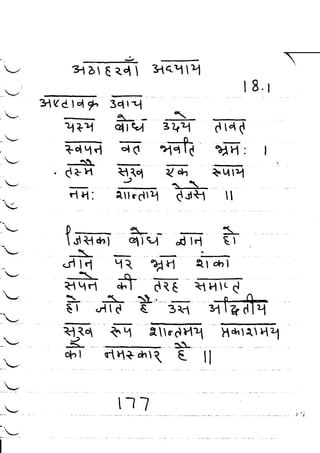 अठाहरवाँ अध्याय
18.1
अष्टावक्र उवाच
यस्य बोध उदये तावत
स्वपन वत भवति भ्रम: ।
तस्मै सुख एक रूपाय
नम: शान्ताय तेजसे ॥
जिसका बोध ज्ञान हो
जाने पर भ्रम शंका
सपने की तरह समाप्त
हो जाते है उस अद्वितीय
सुख रूप शान्तमय प्रकाशमय
को नमस्कार है ॥
177